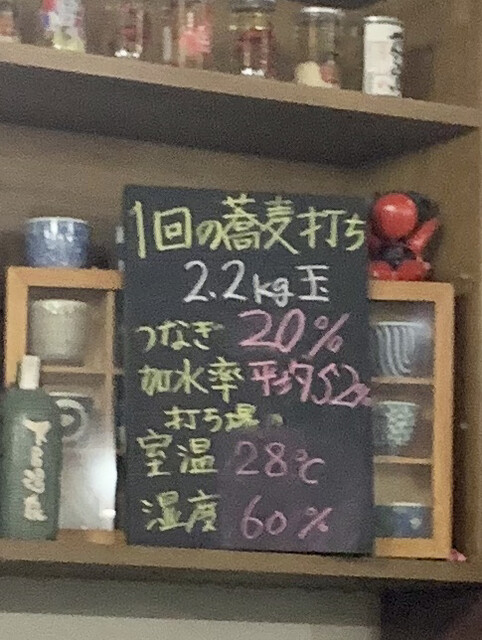 1回の蕎麦打ち
2.2kg玉
つなぎ 20%
加水率 平均52%
打ち場の
室温 28℃
湿度 60%